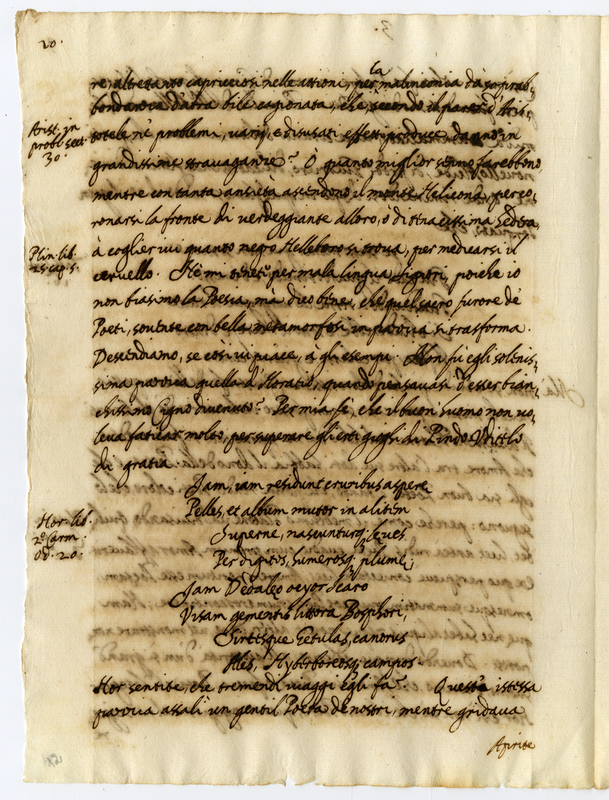 20.
re, altretanto capricciosi nelle attioni, per la malinconia da soprab-
bondanza d'atra bile cagionata, che, secondo il parer d'Aris-
Arist. in
probl. sect.
30.
totele ne' problemi, varij, e disusati effetti produce, dando in
grandissime stravaganze? Ò quanto miglior senno farebbono
mentre con tanta ansietà ascendono il monte Helicona, per co-
ronarsi la fronte di verdeggiante alloro, o di ttenacissima hedera,
Plin. lib.
25. cap. 5.
à coglier ivi quanto negro Helleboro si trova, per medicarsi il
cervello. Nè mi tenete per mala lingua, signori, poiche io
non biasimo la Poesia, mà dico bene, che quel sacro furore de'
Poeti, sovente con bella metamorfosi in pazzia si trasforma.
Descendiamo, se così vi piace, à gli esempi. Non fù egli solenis-
sima pazzia quella d'Horatio, quando pensavasi d'esser bian-
chissimo Cigno divenuto? Per mia fè, che il buon huomo non vo-
leva faticar molto, per superare gli erti gioghi di Pindo. Uditelo
di gratia.
Hor. lib.
2. Carm.
Od. 20.
Jam, iam residunt cruribus asperę
Pelles, et album mutor in alitem
Supernè, nascunturq; leves
Per digitos, humerosq; plumę;
Jam Dędaleo ocyor Icaro
Visam gementis littora Bosphori,
Sirtesque Getulas, canorus
Ales, Hyberboreosq; campos.
Hor sentite, che tremendi viaggi egli fà? Questa istessa
pazzia assalì un gentil Poeta de' nostri, mentre gridava
Aprite